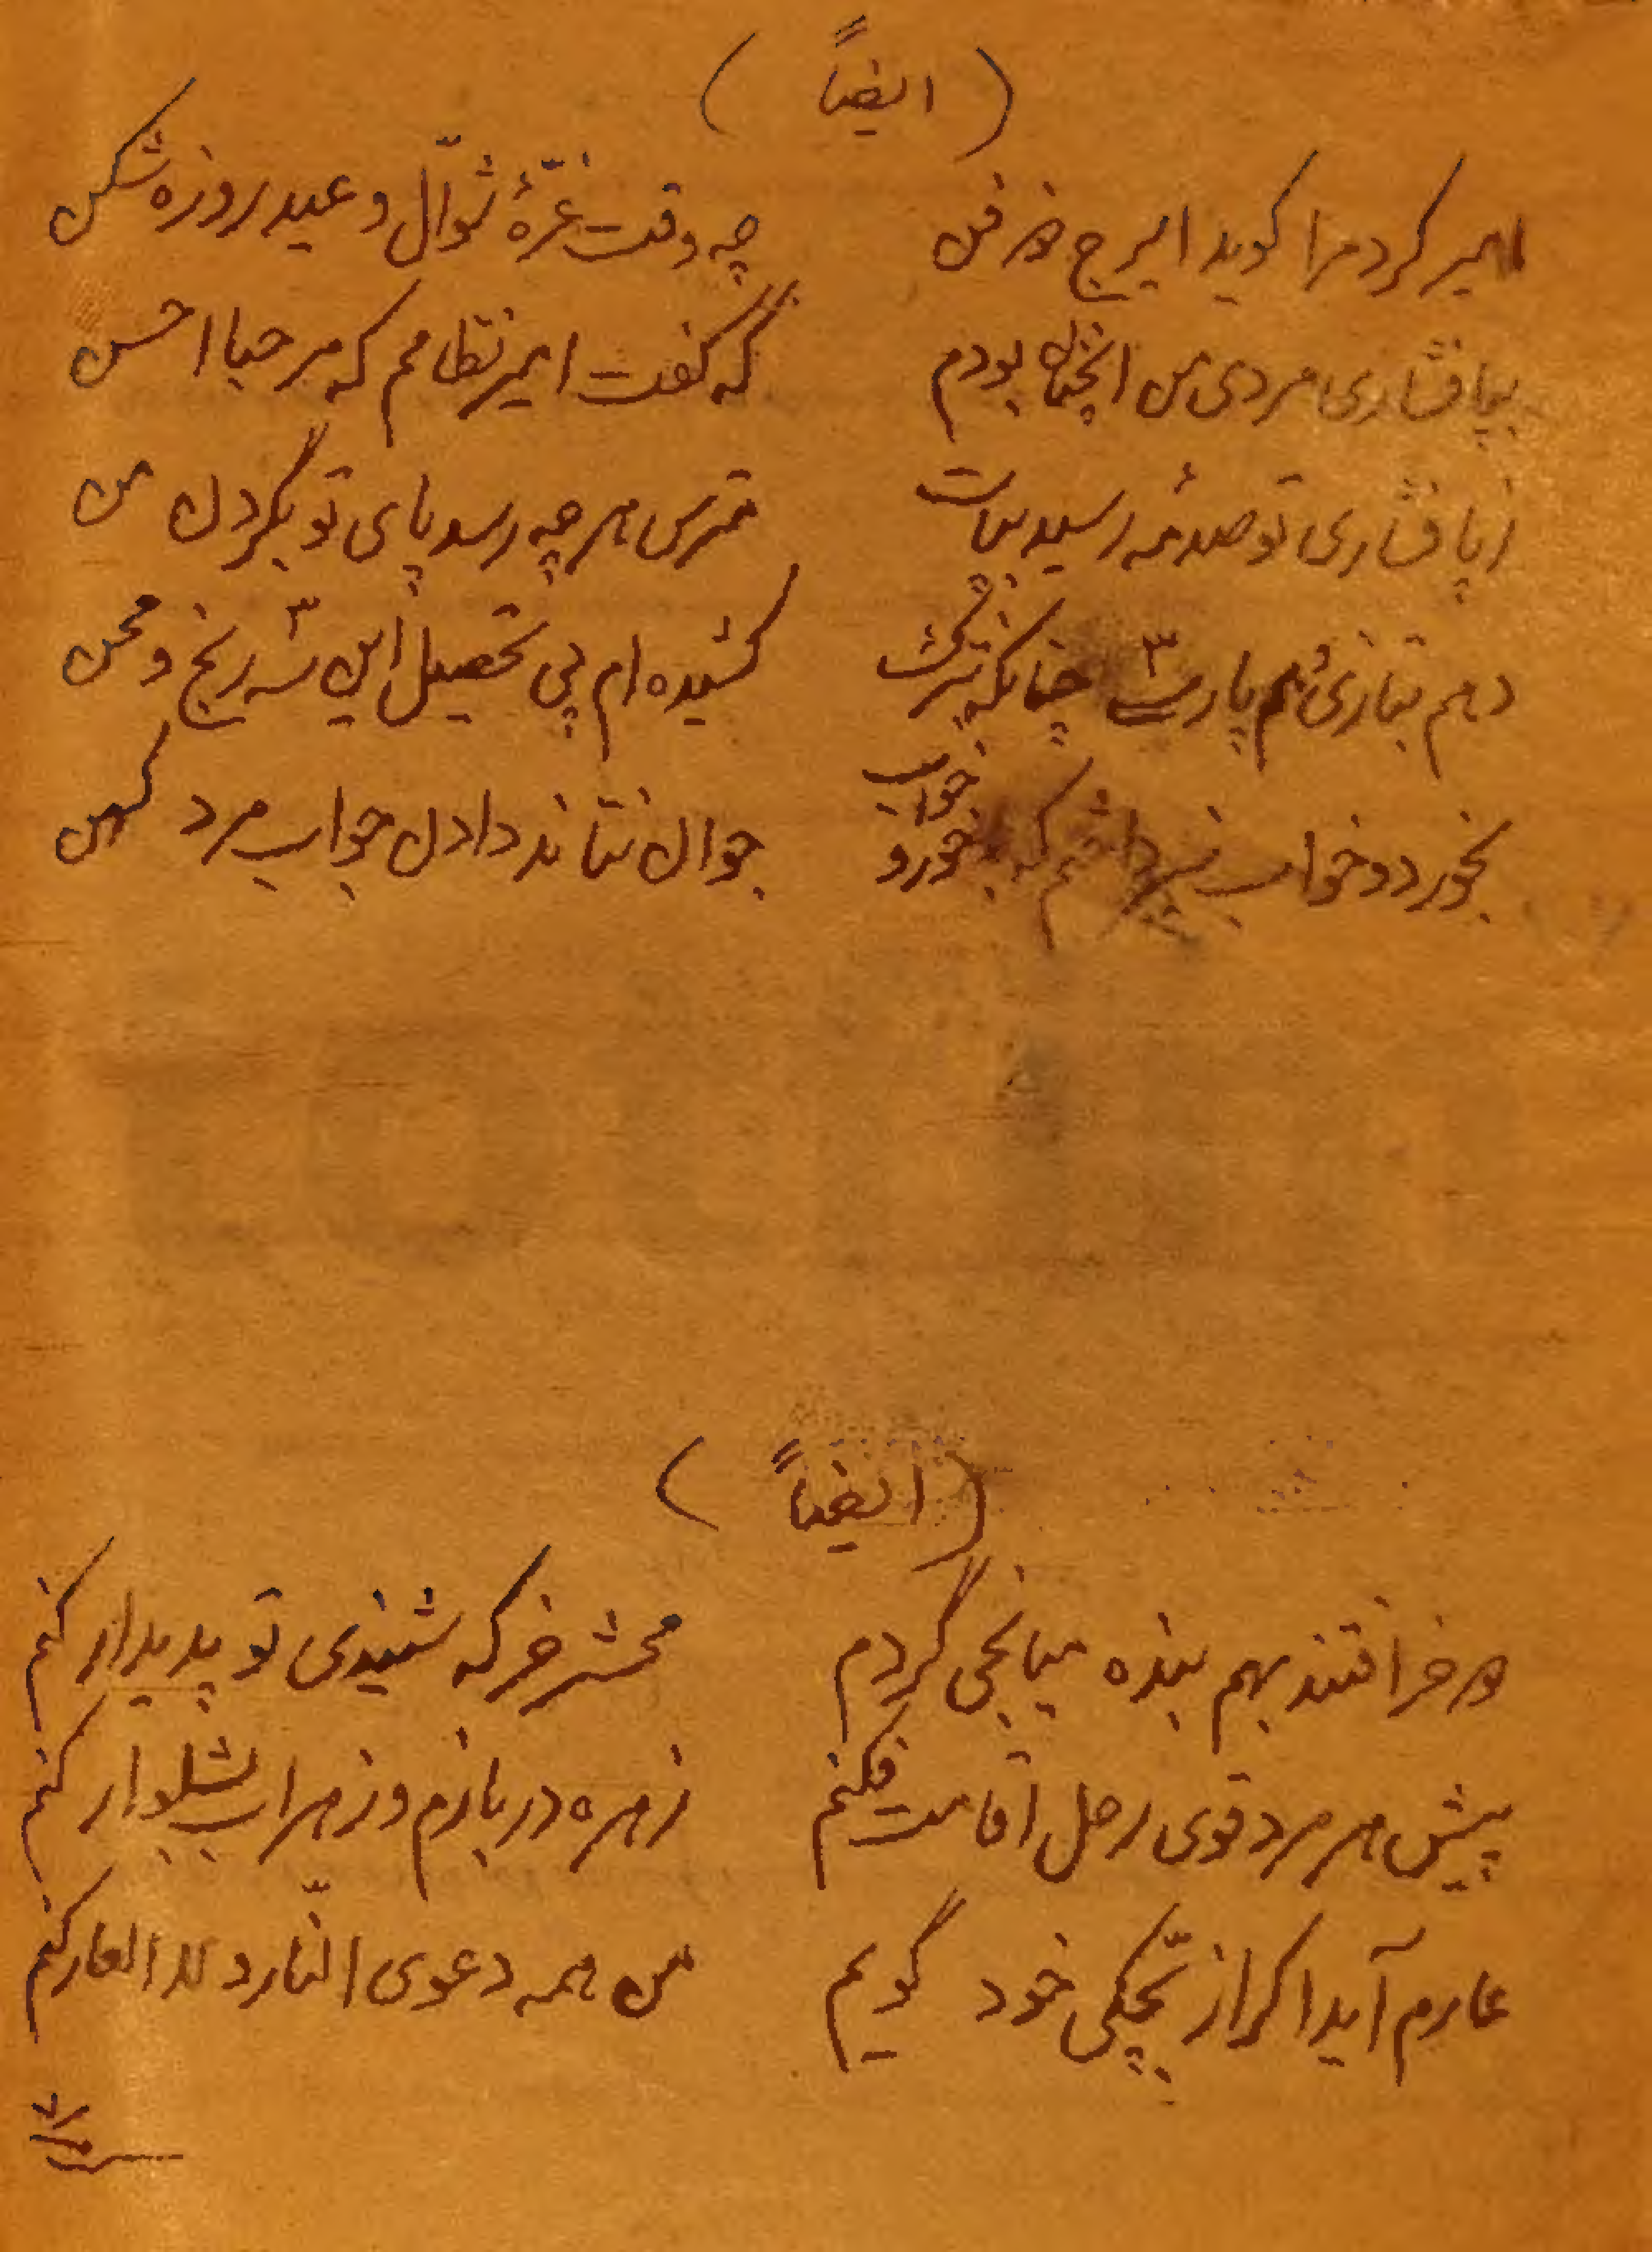 ( ایضاً )
امیر کرد مرا گوید ایرج خر فن چه وقت غرّهٔ شوّال و عید روزه شکن
بپافشاری مردی من آنچنان بودم که گفت امیر نظامم که مرحبا احسن
ز پافشاری تو صدمهٔ رسید بپات مترس هر چه رسد پای تو بگردن من
دهم بتازی هم پارسی چنانکه بترک کشیده ام پی تحصیل این سه رنج و محن
خواب
بخورد و خواب نپرداختم که خورد و جوان نتاند دادن جواب مرد کهن
( ایضاً )
ور خر افتند بهم بنده میانجی گردم محشر خر که شنیدی تو پدیدار کنم
پیش هر مرد قوی رحل اقامت فکنم زهره در بازم و زهراب بشلوار کنم
عارم آید اگر از بچّگی خود گویم من همه دعوی النّار و لا العار کنم